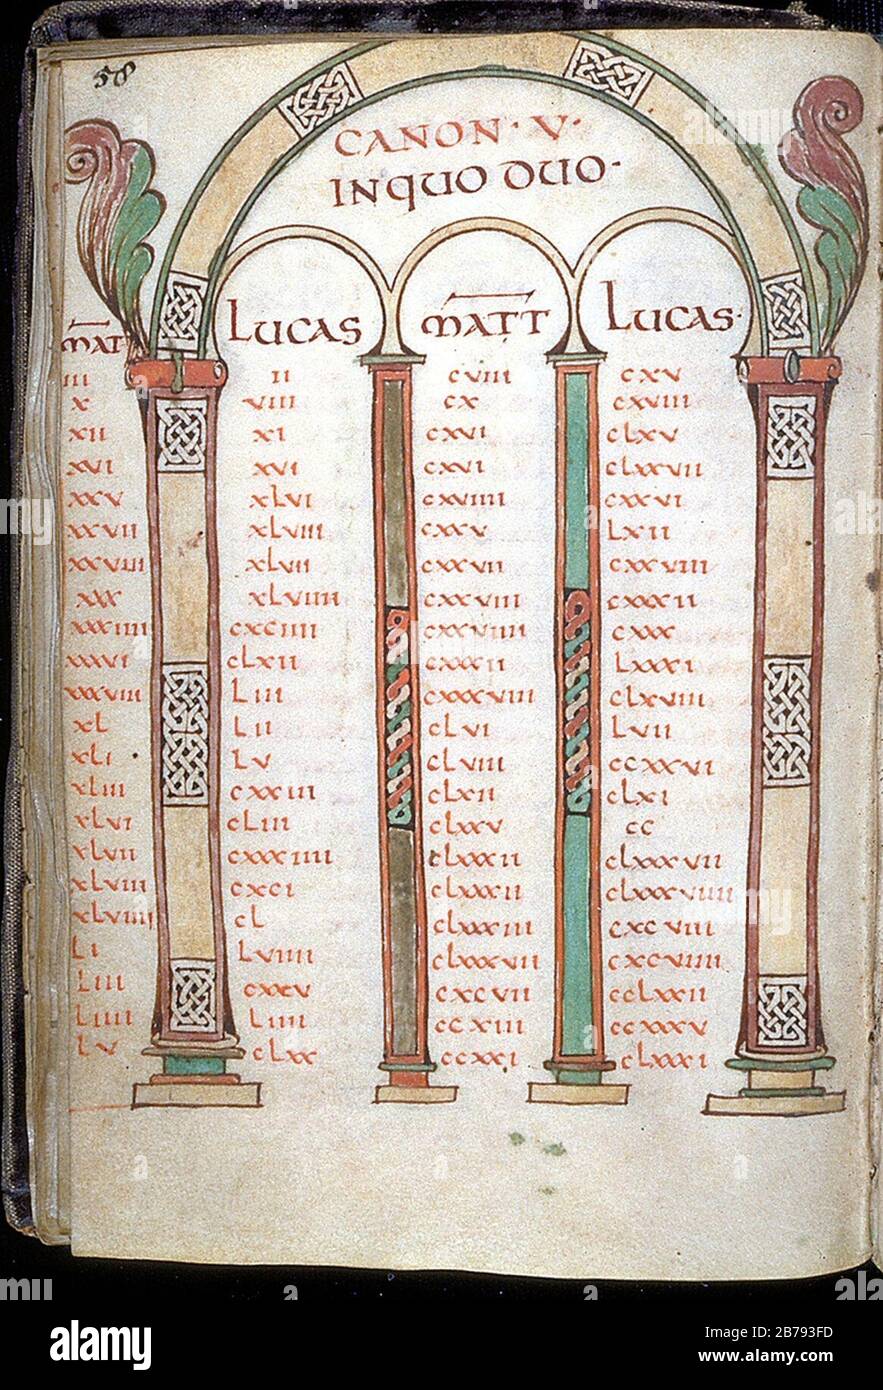 58
CANON · V ·
IN QUO DUO ·
MAT LUCAS MATT LUCAS ·
III II CVIII CXV
X VIII CX CXVIII
XII XI CXVI CLXV
XVI XVI CXVI CLXXVII
XXV XLVI CXVIIII CXXVI
XXVII XLVIII CXXV LXII
XXVIII XLVII CXXVII CXXVIII
XXX XLVIIII CXXVIII CXXXII
XXXIIII CXCIIII CXXVIIII CXXX
XXXVI CLXII CXXXII LXXXI
XXXVIII LIII CXXXVIII CLXVIII
XL LII CLVI LVII
XLI LV CLVIII CCXXVI
XLIII CXXIII CLXII CLXI
XLVI CLIII CLXXV CC
XLVII CXXXIIII CLXXXII CLXXXVII
XLVIII CXCI CLXXXII CLXXXVIIII
XLVIIII CL CLXXXIII CXCVIII
LI LVIIII CLXXXVII CXCVIIII
LIII CXXV CXCVII CCLXXII
LIIII LIIII CCXIII CCXXXV
LV CLXX CCXXI CLXXXI
alamy
Image ID: 2B793FD
www.alamy.com